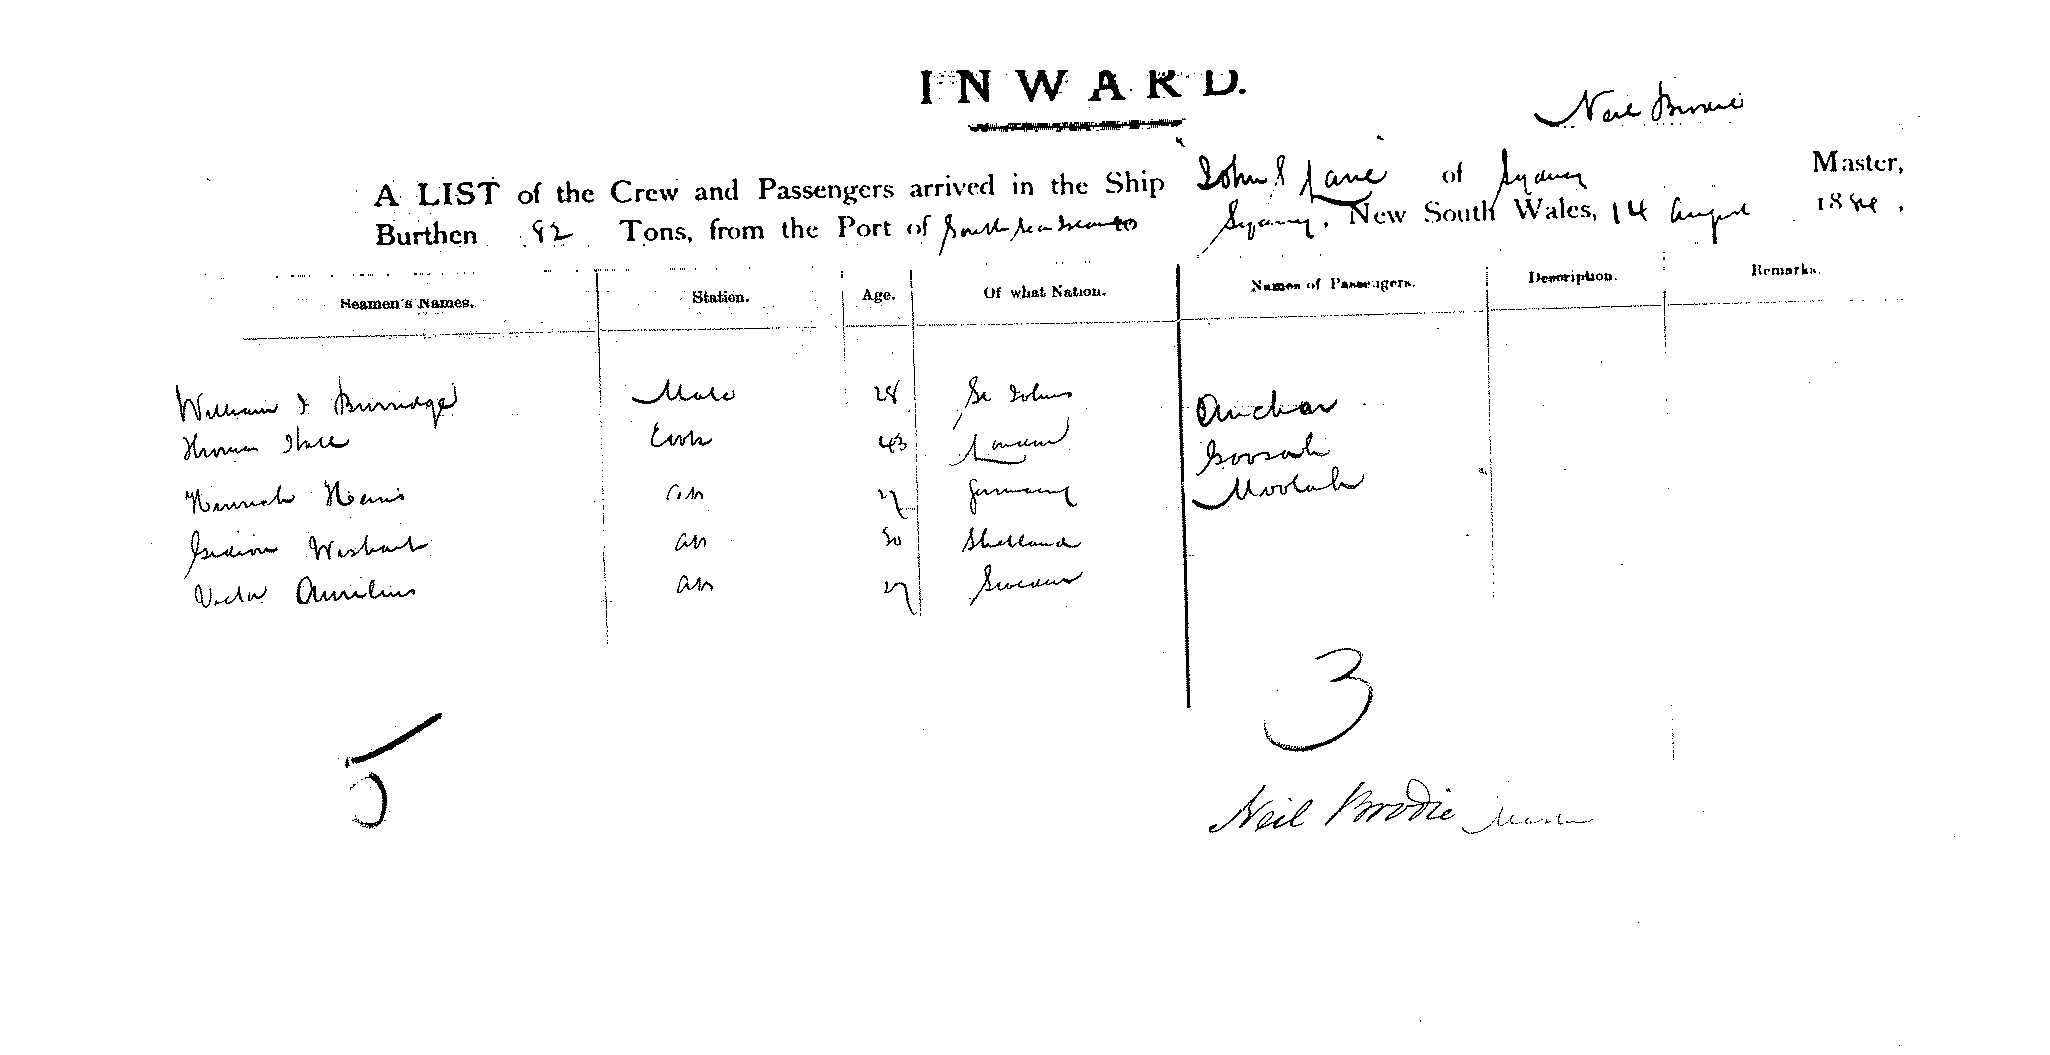 INWARD.
Neil Brodie
A LIST of the Crew and Passengers arrived in the Ship John S Lane of Sydney Master,
Burthen 82 Tons, from the Port of South Sea Islands to Sydney, New South Wales, 14 August 1884.
Seamen's Names. Station. Age. Of what Nation. Names of Passengers. Description. Remarks.
William J Burridge Mate 28 St Johns Anchor
Thomas Cook 43 London Goosah
AB 27 Germany Moolah
Gideon Wishart AB 30 Shetland
Victor AB 27 Sweden
5 3
Neil Brodie Master